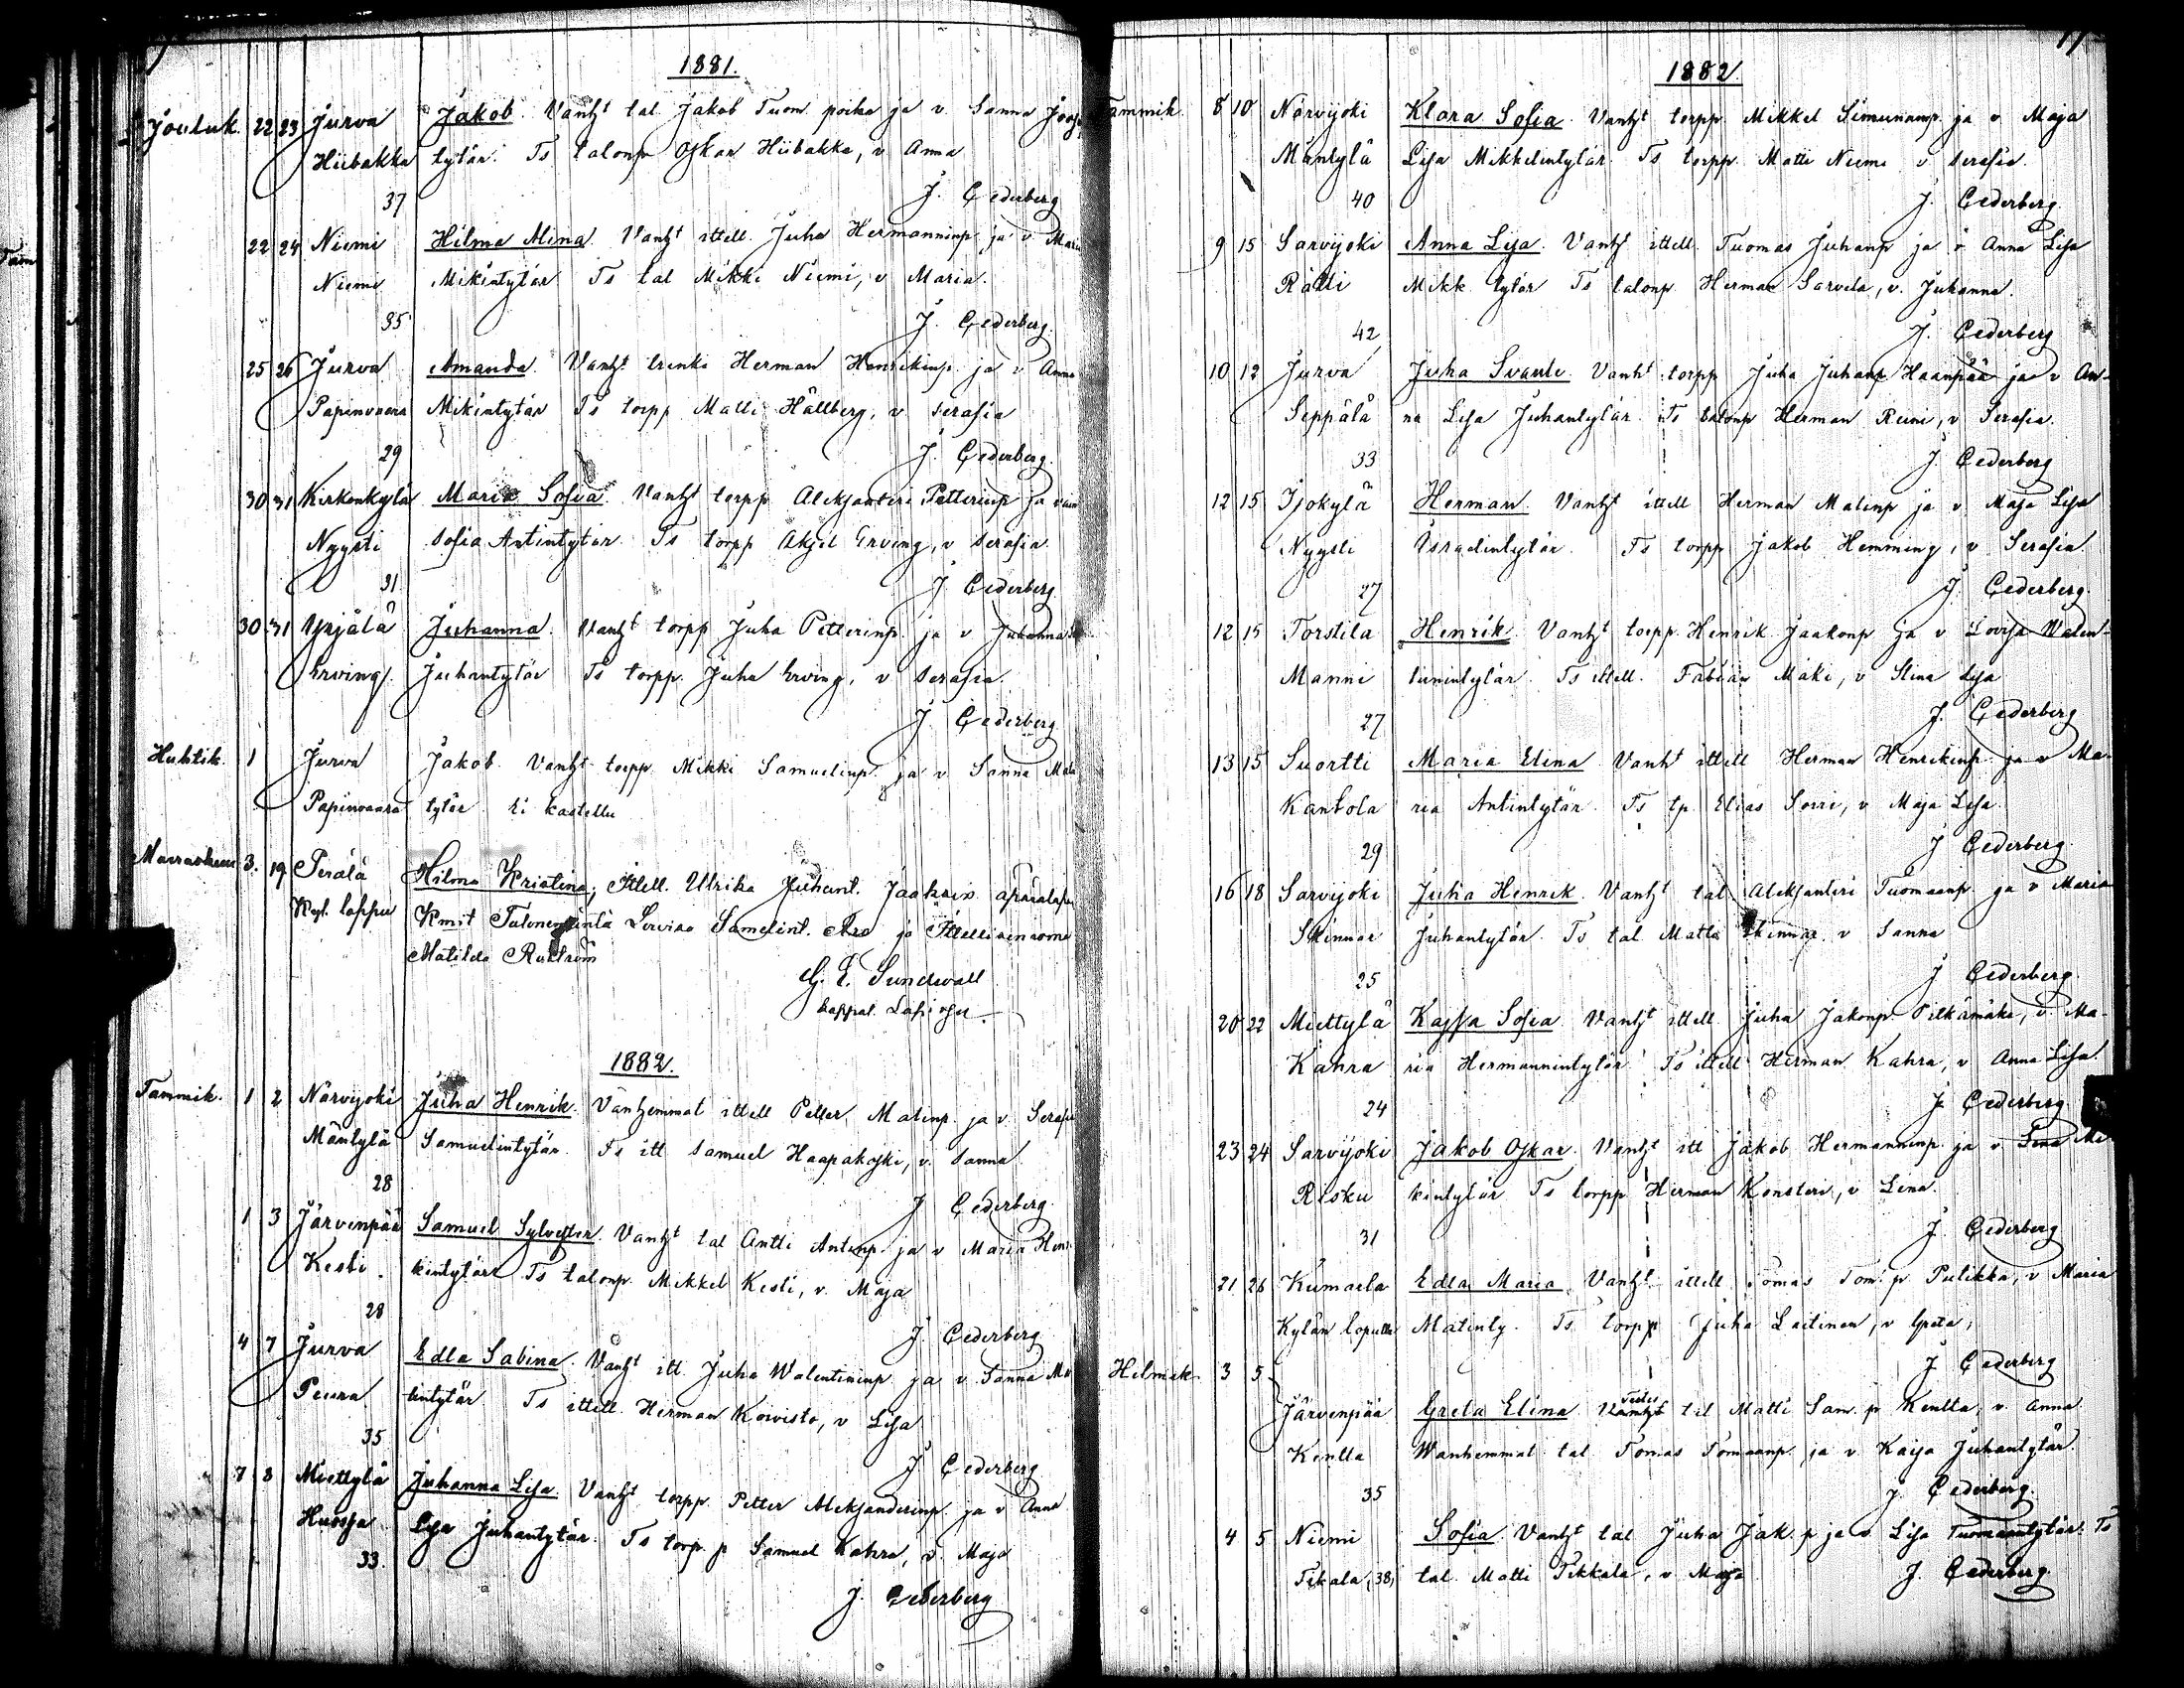 1881.
Jouluk. 22 23 Jurva Jakob. Vanht tal. Jakob Tuom. poika ja v. Sanna
Hiibakka tytär. Ts talonp Oskar Hiibakka, v. Anna
37 J. Cederberg
22 24 Niemi Hilma Mina. Vanht ittell. Juha Hermanninp ja v. Maria
Niemi Mikintytär Ts tal Mikki Niemi, v Maria.
35 J. Cederberg.
25 26 Jurva Amanda. Vanht trenki Herman Henrikinp. ja v Anna
Papinvaara Mikintytär Ts torpp Matti Hällberg, v Serafia
29 J. Cederberg.
30 31 Kirkonkylä Maria Sofia. Vanht torpp Aleksanteri Petterinp ja vaim
Nyysti Sofia Antintytär Ts torpp Aksel Erving, v Serafia
31 J Cederberg
30 31 Yrjälä Juhanna. Vanht torpp Juha Petterinp ja v Juhanna
Erving Juhantytär Ts torpp. Juha Erving, v Serafia.
J Cederberg
Huhtik. 1 Jurva Jakob. Vanht torpp Mikki Samuelinp ja v. Sanna Mati
Papinvaara tytär Ei kastettu
Marraskuu 3. 19 Perälä Hilma Kristina, Ittell. Ulrika Juhant. Jaakais
Kyl. loppu Kmit Lovisa Samelint. ja
Matilda
G. E. Sundwall
kappal.
1882.
Tammik. 1 2 Närvijoki Juha Henrik. Vanhemmat ittell Petter Matinp. ja v. Serafia
Mäntylä Samuelintytär. Ts itt Samuel Haapakoski, v. Sanna
28 J Cederberg.
1 3 Järvenpää Samuel Sylvester Vanht tal Antti Antinp ja v Maria Hen
Kesti. kintytär Ts talonp. Mikkel Kesti, v. Maja
28 J. Cederberg
4 7 Jurva Edla Sabina. Vanht itt. Juha Walentininp ja v. Sanna Ma
Peura tintytär Ts ittell. Herman Koivisto, v Lisa
35 J Cederberg
7 8 Miettylä Juhanna Lisa. Vanht torpp. Petter Aleksanderinp ja v Anna
Huossa Lisa Juhantytär. Ts torp. p Samuel Kahra, v. Maja
33. J. Cederberg
1882.
Tammik. 8 10 Närvijoki Klara Sofia. Vanht torpp. Mikkel Simunanp ja v Maja
Mäntylä Lisa Mikkelintytär. Ts torpp. Matti Niemi v Serafia.
40 J. Cederberg.
9 15 Sarvijoki Anna Lisa. Vanht ittell. Tuomas Juhanp ja v Anna Lisa
Rätti Mikk. tytär Ts talonp Herman Sarvela, v. Juhanna.
42 J. Cederberg
10 12 Jurva Juha Svante. Vanht torpp Juha Juhanp Haanpää ja v An-
Seppälä na Lisa Juhantytär. Ts talonp Herman Reini, v Serafia.
33 J. Cederberg
12 15 Ijokylä Herman. Vanht ittell Herman Matinp ja v Maja Lisa
Nyysti Israelintytär. Ts torpp Jakob Hemming, v Serafia.
27 J. Cederberg.
12 15 Torstila Henrik. Vanht torpp. Henrik Jaakonp ja v Lovisa Walen-
Manni tinintytär. Ts ittell. Fabian Mäki, v Stina Lisa
27 J. Cederberg
13 15 Suortti Maria Elina Vanht ittell Herman Henrikinp ja v Ma-
Kantola ria Antintytär. Ts tp. Elias Sorri, v Maja Lisa.
29 J Cederberg.
16 18 Sarvijoki Juha Henrik Vanht tal. Aleksanteri Tuomaanp ja v Maria
Skinnar Juhantytär. Ts tal Matti Skinnar v Sanna
25 J Cederberg.
20 22 Miettylä Kajsa Sofia Vanht ittell Juha Jakonp Pitkämäki, v. Ma-
Kahra ria Hermannintytär. Ts ittell Herman Kahra, v Anna Lisa.
24 J. Cederberg
23 24 Sarvijoki Jakob Oskar. Vanht itt Jakob Hermanninp ja v Lena Mi
Risku kintytär Ts torpp Herman Konsteri, v Lena.
31 J. Cederberg
21 26 Kiimaela Edla Maria. Vanht ittell Tomas Tom. p Pulikka, v Maria
Kylän lopulla Matinty. Ts torpp Juha Laitinen, v Greta,
J Cederberg
Helmik. 3 5
Järvenpää Greta Elina tal Matti Sam. p Kentta, v. Anna
Kentta Wanhemmat tal Tomas Tomaanp. ja v. Kaisa Juhantytär.
35 J. Cederberg.
4 5 Niemi Sofia Vanht tal Juha Jak. p ja v. Lisa Tuomaantytär. Ts
Tikala (38) tal. Matti Tikkala, v Maja J. Cederberg.